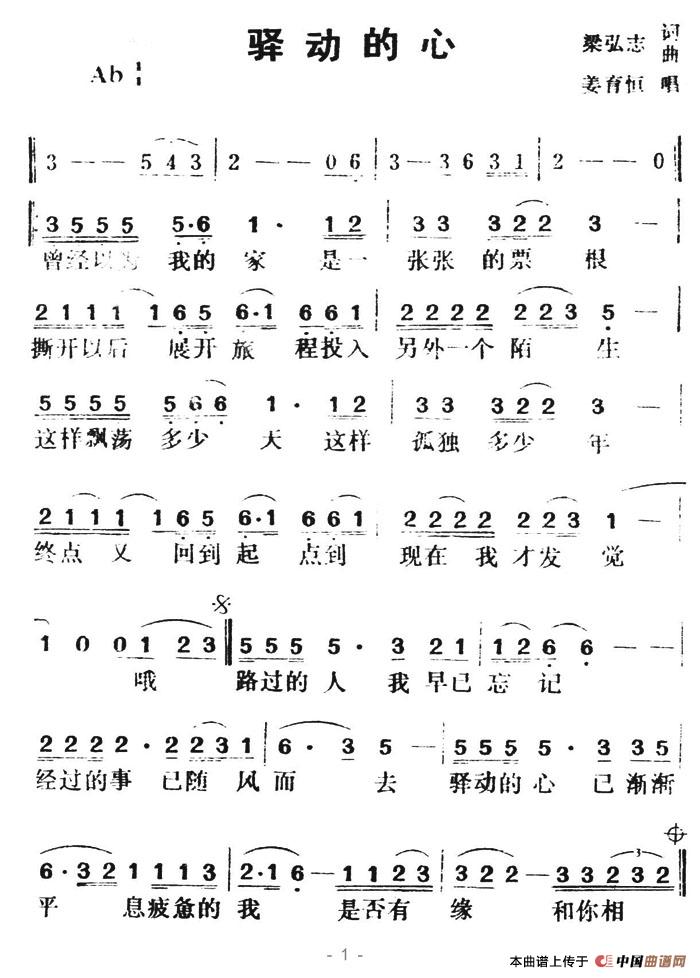 驿动的心
梁弘志 词曲
Ab
姜育恒 唱
3 — — 5 4 3 | 2 — — 0 6 | 3 — 3 6 3 1 | 2 — — 0
3 5 5 5 5·6 1· 1 2 | 3 3 3 2 2 3 —
曾经以为 我的 家 是一 张张 的票 根
2 1 1 1 1 1 6 5 6·1 6 6 1 | 2 2 2 2 2 2 3 5 —
撕开以后 展开 旅 程投入 另外一个 陌 生
5 5 5 5 5 6 6 1· 1 2 | 3 3 3 2 2 3 —
这样飘荡 多少 天 这样 孤独 多少 年
2 1 1 1 1 6 5 6·1 6 6 1 | 2 2 2 2 2 2 3 1 —
终点 又 回到 起 点到 现在 我 才发 觉
1 0 0 1 2 3 5 5 5 5· 3 2 1 | 1 2 6 6 — —
哦 路过的 人 我 早已 忘记
2 2 2 2· 2 2 3 1 | 6· 3 5 — 5 5 5 5· 3 3 5
经过的事 已随 风而 去 驿动的 心 已渐渐
6·3 2 1 1 1 3 | 2·1 6 — 1 1 2 3 | 3 2 2 — 3 3 2 3 2
平 息疲惫的 我 是否有 缘 和你相
- 1 -
本曲谱上传于 中国曲谱网